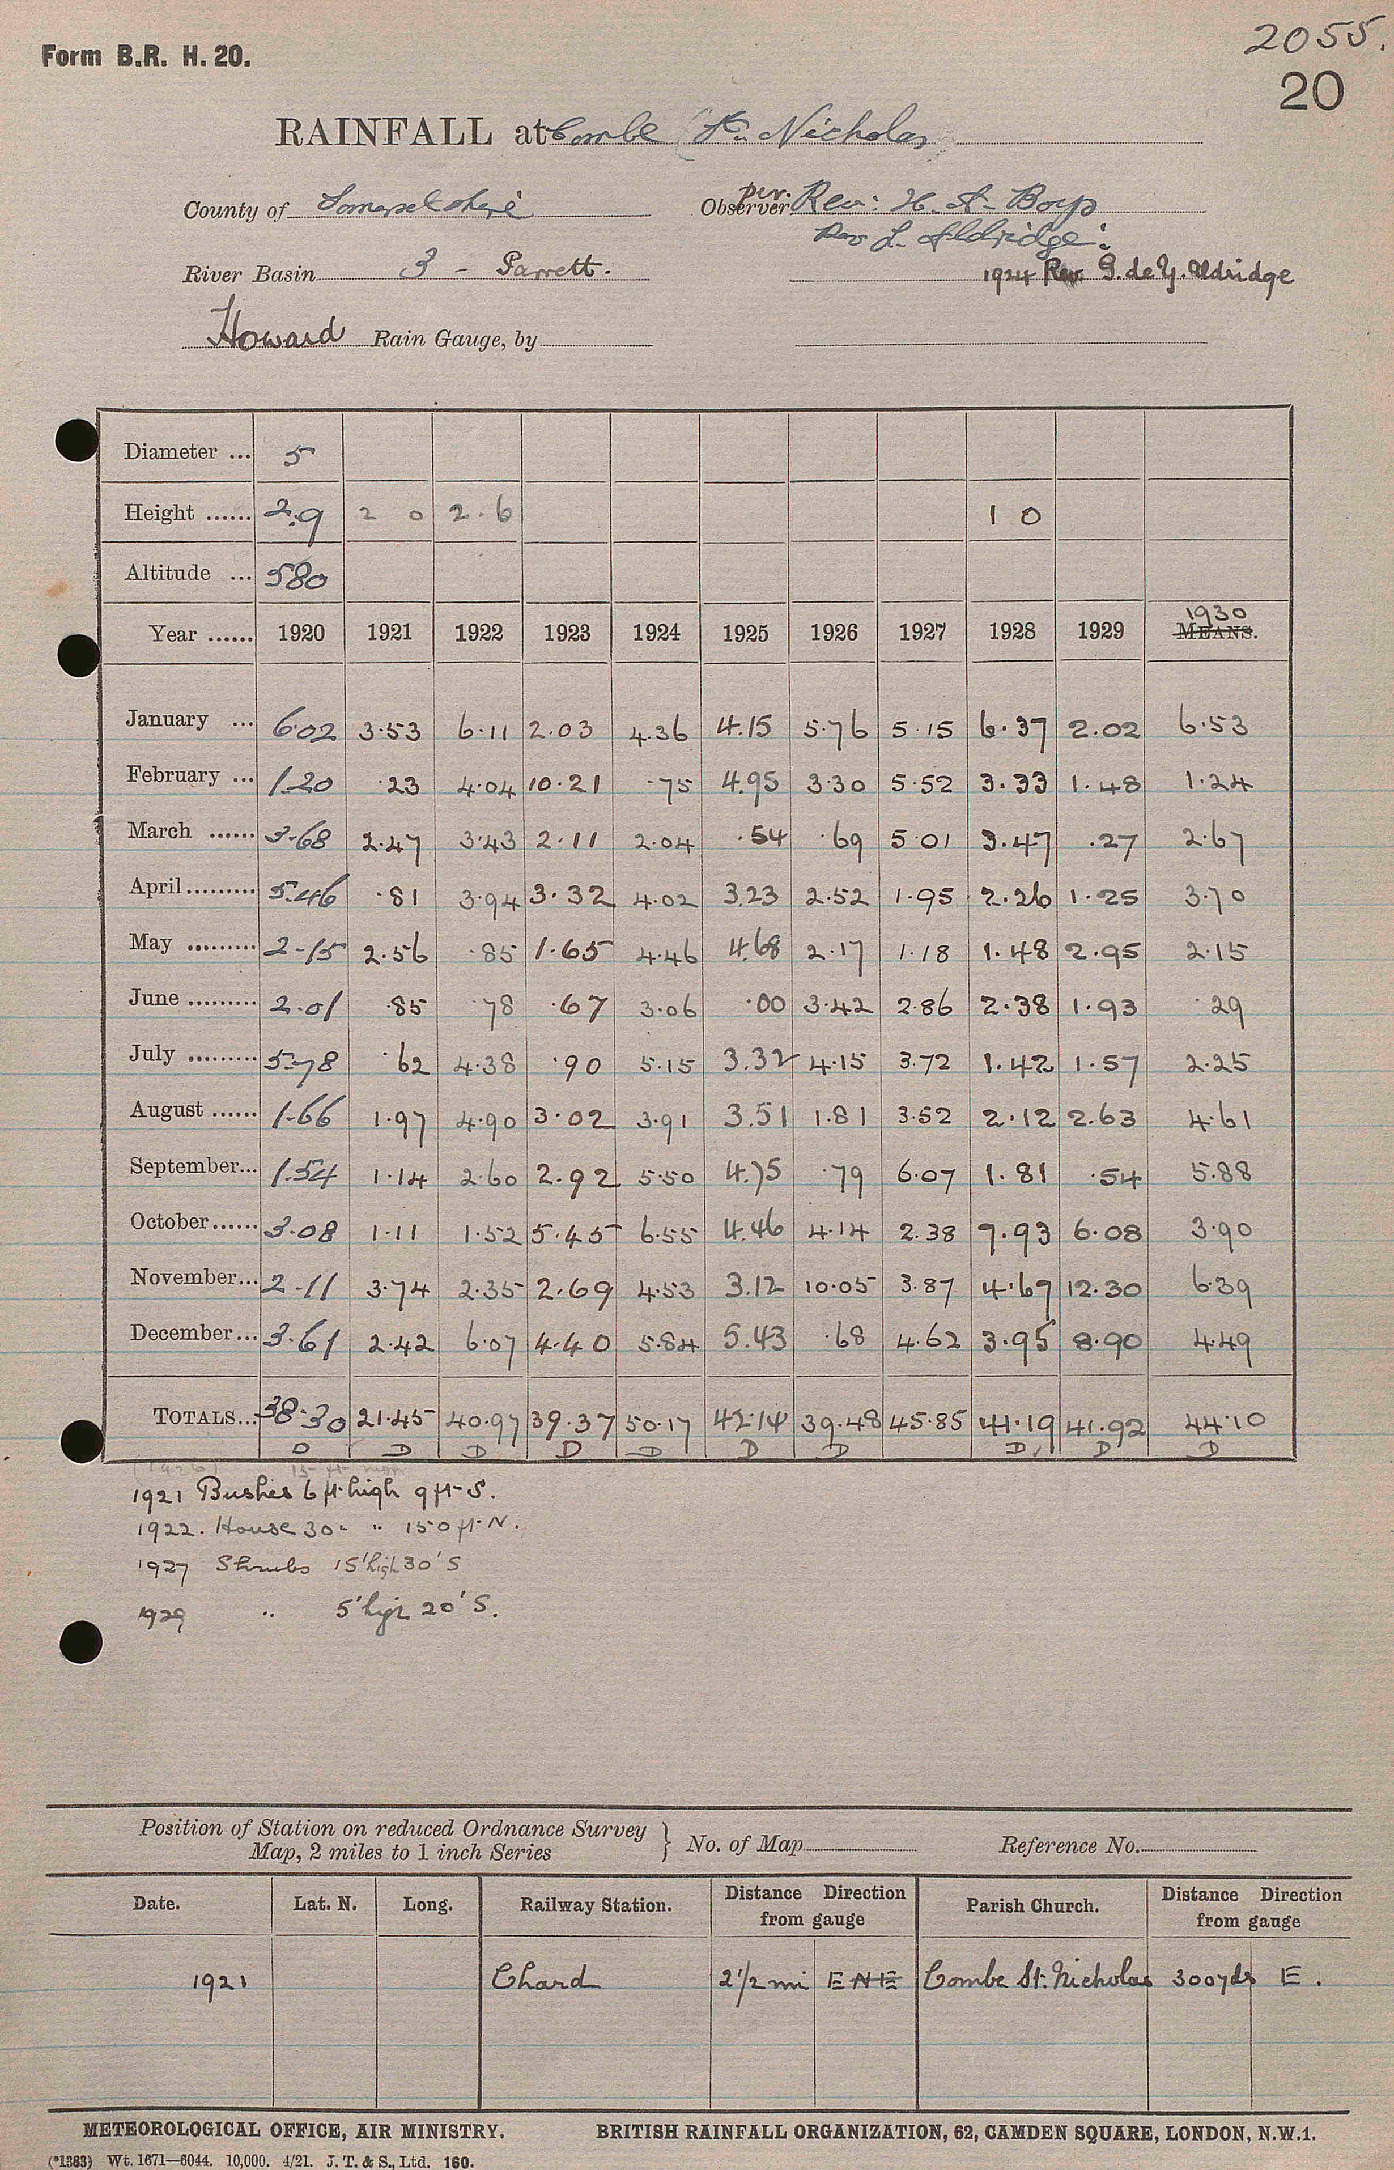 Form B.R. H. 20.
2055.
20
RAINFALL at Combe St. Nicholas
County of Somersetshire
Observer per. Rev: H. A. Boys
Rev L. Aldridge.
River Basin 3 - Parrett.
1924 Rev. G. de Y. Aldridge
Howard Rain Gauge, by
Diameter ... 5
Height ...... 2.9 2 0 2.6 1 0
Altitude ... 580
Year ...... 1920 1921 1922 1923 1924 1925 1926 1927 1928 1929 1930 MEANS.
January ... 6.02 3.53 6.11 2.03 4.36 4.15 5.76 5.15 6.37 2.02 6.53
February ... 1.20 .23 4.04 10.21 .75 4.95 3.30 5.52 3.33 1.48 1.24
March ...... 3.68 2.47 3.43 2.11 2.04 .54 .69 5 01 3.47 .27 2.67
April ......... 5.46 .81 3.94 3.32 4.02 3.23 2.52 1.95 2.26 1.25 3.70
May ......... 2.15 2.56 .85 1.65 4.46 4.68 2.17 1.18 1.48 2.95 2.15
June ......... 2.01 .85 .78 .67 3.06 .00 3.42 2.86 2.38 1.93 .29
July ......... 5.78 .62 4.38 .90 5.15 3.32 4.15 3.72 1.42 1.57 2.25
August ...... 1.66 1.97 4.90 3.02 3.91 3.51 1.81 3.52 2.12 2.63 4.61
September... 1.54 1.14 2.60 2.92 5.50 4.75 .79 6.07 1.81 .54 5.88
October...... 3.08 1.11 1.52 5.45 6.55 4.46 4.14 2.38 7.93 6.08 3.90
November... 2.11 3.74 2.35 2.69 4.53 3.12 10.05 3.87 4.67 12.30 6.39
December... 3.61 2.42 6.07 4.40 5.84 5.43 .68 4.62 3.95 8.90 4.49
TOTALS... 38.30 21.45 40.97 39.37 50.17 42.14 39.48 45.85 41.19 41.92 44.10
D D D D D D D D D D
1921 Bushes 6 ft. high 9 ft. S.
1922. House 30 - " 150 ft. N.
1927 Shrubs 15' high 30' S
1929 " 5' high 20' S.
Position of Station on reduced Ordnance Survey
Map, 2 miles to 1 inch Series } No. of Map Reference No.
Date. Lat. N. Long. Railway Station. Distance Direction from gauge Parish Church. Distance Direction from gauge
1921 Chard 2 1/2 mi ENE Combe St. Nicholas 300 yds E.
METEOROLOGICAL OFFICE, AIR MINISTRY. BRITISH RAINFALL ORGANIZATION, 62, CAMDEN SQUARE, LONDON, N.W.1.
(*1383) Wt. 1671—6044. 10,000. 4/21. J. T. & S., Ltd. 160.